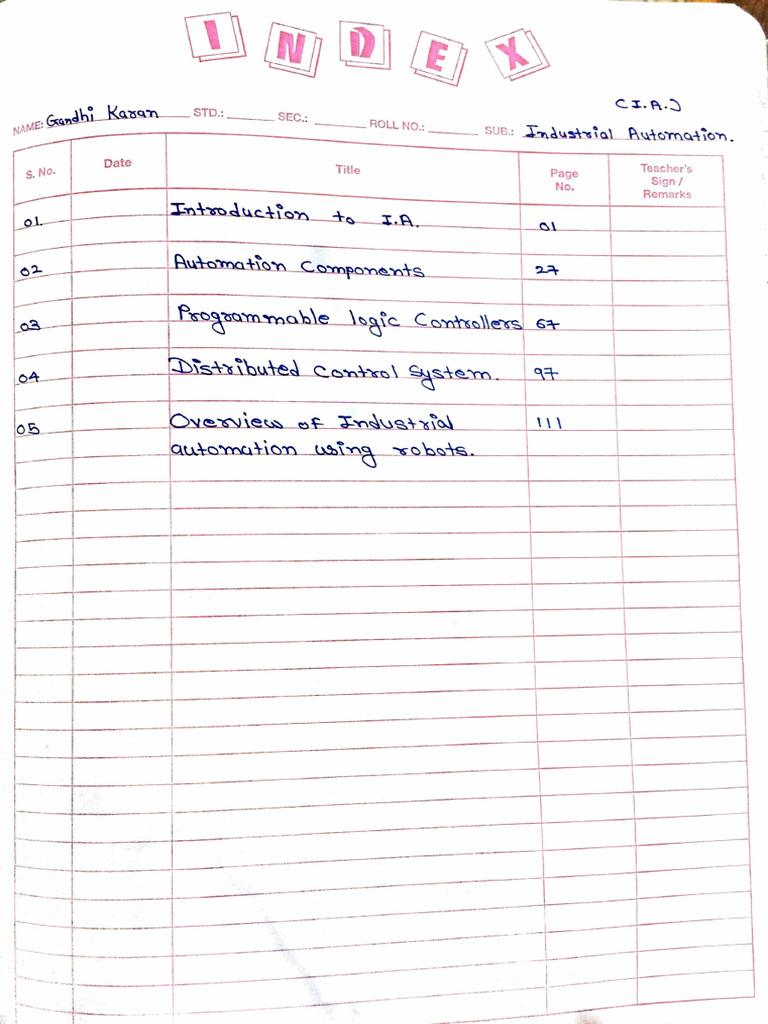 INDEX
(I.A.)
NAME: Gandhi Karan STD.: SEC.: ROLL NO.: SUB.: Industrial Automation.
S. No. Date Title Page No. Teacher's Sign / Remarks
01. Introduction to I.A. 01
02 Automation Components 27
03 Programmable logic Controllers 67
04 Distributed Control System. 97
05 Overview of Industrial 111
automation using robots.